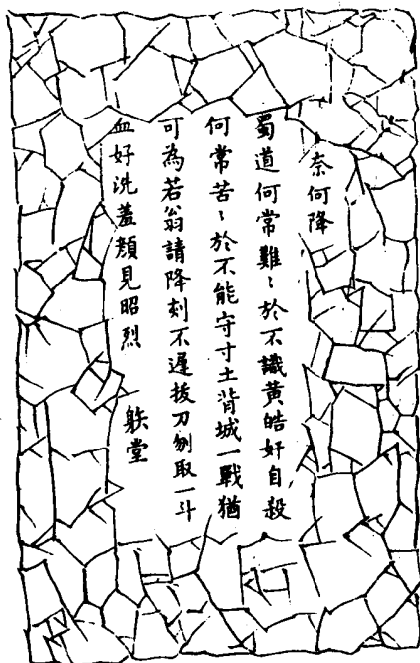 奈何降
蜀道何常難〻於不識黃皓奸自殺
何常苦〻於不能守寸土背城一戰猶
可為若翁請降刻不遲拔刀刎取一斗
血好洗羞顏見昭烈
軼堂